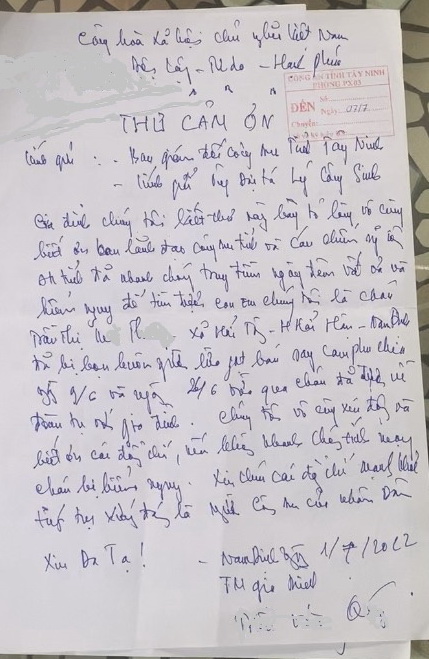 Cộng hoà xã hội chủ nghĩa Việt Nam
Độc Lập - Tự do - Hạnh Phúc
CÔNG AN TỈNH TÂY NINH
PHÒNG PX03
ĐẾN
Số
Ngày: 07/7
Chuyển:
THƯ CẢM ƠN
Kính gửi: - Ban giám đốc Công an Tỉnh Tây Ninh
- Kính gửi Ông Đại tá Lý Hồng Sinh
Gia đình chúng tôi viết thư này bày tỏ lòng vô cùng
biết ơn ban lãnh đạo công an tỉnh và các chiến sỹ
đã nhanh chóng truy tìm ngày đêm vất vả và
hiểm nguy để tìm kiếm con em chúng tôi là cháu
Trần Thị xã Hải Tây - H Hải Hậu - Nam Định
đã bị bọn buôn người lừa gạt bán sang campuchia
9/6 và ngày 26/6 vừa qua cháu đã được về
đoàn tụ với gia đình. Chúng tôi vô cùng xúc động và
biết ơn các đồng chí, nếu không nhanh chóng
cháu bị hiểm nguy. Xin chúc các đ/chí mạnh khoẻ
tiếp tục xứng đáng là người Công an của nhân Dân
Xin Đa Tạ! - Nam Định ngày 1/7/2022
TM gia đình